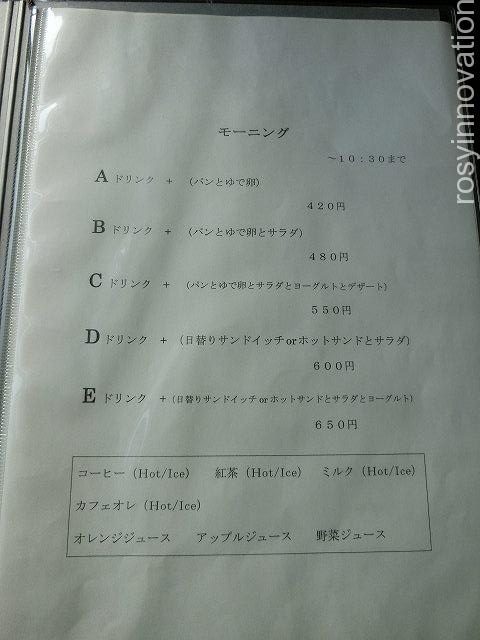 モーニング
～10:30まで
A ドリンク + (パンとゆで卵)
420円
B ドリンク + (パンとゆで卵とサラダ)
480円
C ドリンク + (パンとゆで卵とサラダとヨーグルトとデザート)
550円
D ドリンク + (日替りサンドイッチorホットサンドとサラダ)
600円
E ドリンク + (日替りサンドイッチorホットサンドとサラダとヨーグルト)
650円
コーヒー (Hot/Ice) 紅茶 (Hot/Ice) ミルク (Hot/Ice)
カフェオレ (Hot/Ice)
オレンジジュース アップルジュース 野菜ジュース
rosyinnovation